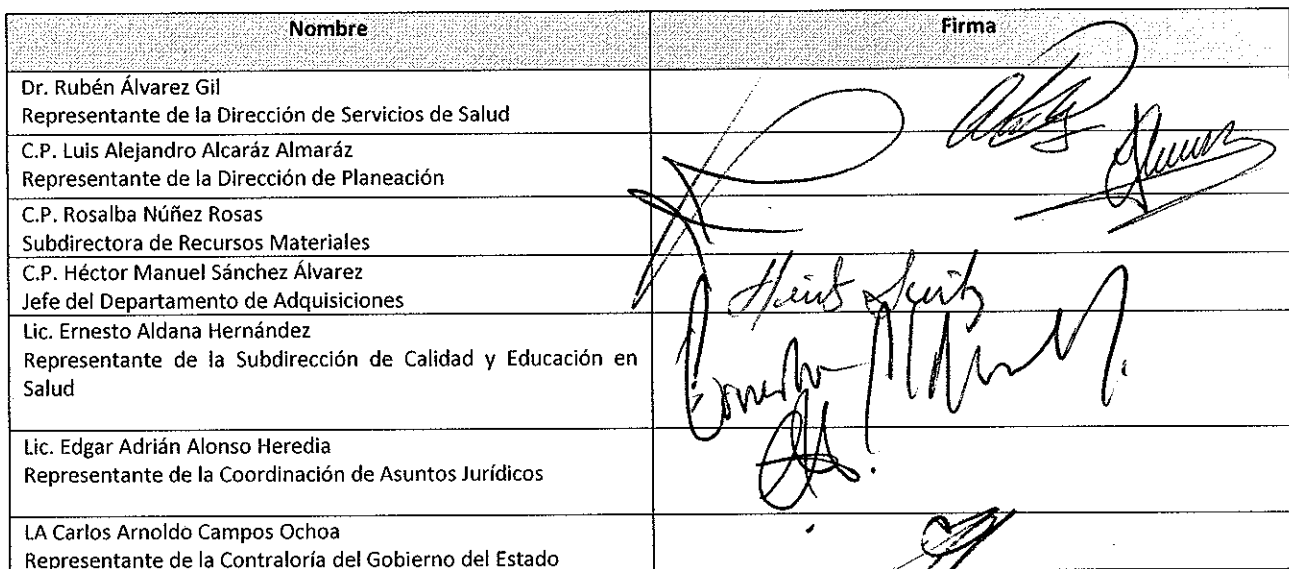 Nombre Firma
Dr. Rubén Álvarez Gil
Representante de la Dirección de Servicios de Salud
C.P. Luis Alejandro Alcaráz Almaráz
Representante de la Dirección de Planeación
C.P. Rosalba Núñez Rosas
Subdirectora de Recursos Materiales
C.P. Héctor Manuel Sánchez Álvarez
Jefe del Departamento de Adquisiciones
Lic. Ernesto Aldana Hernández
Representante de la Subdirección de Calidad y Educación en
Salud
Lic. Edgar Adrián Alonso Heredia
Representante de la Coordinación de Asuntos Jurídicos
LA Carlos Arnoldo Campos Ochoa
Representante de la Contraloría del Gobierno del Estado